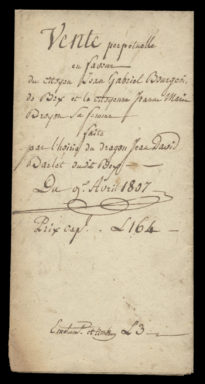 Vente perpétuelle
en faveur
du citoyen Jean Gabriel Bourgeois
de Bex et la citoyenne Jeanne Marie
sa femme
faite
par l'hoirie du dragon Jean David
Barlet du dit Bex
Du 9e. Avril 1807
Prix cap.l L 164
L 3